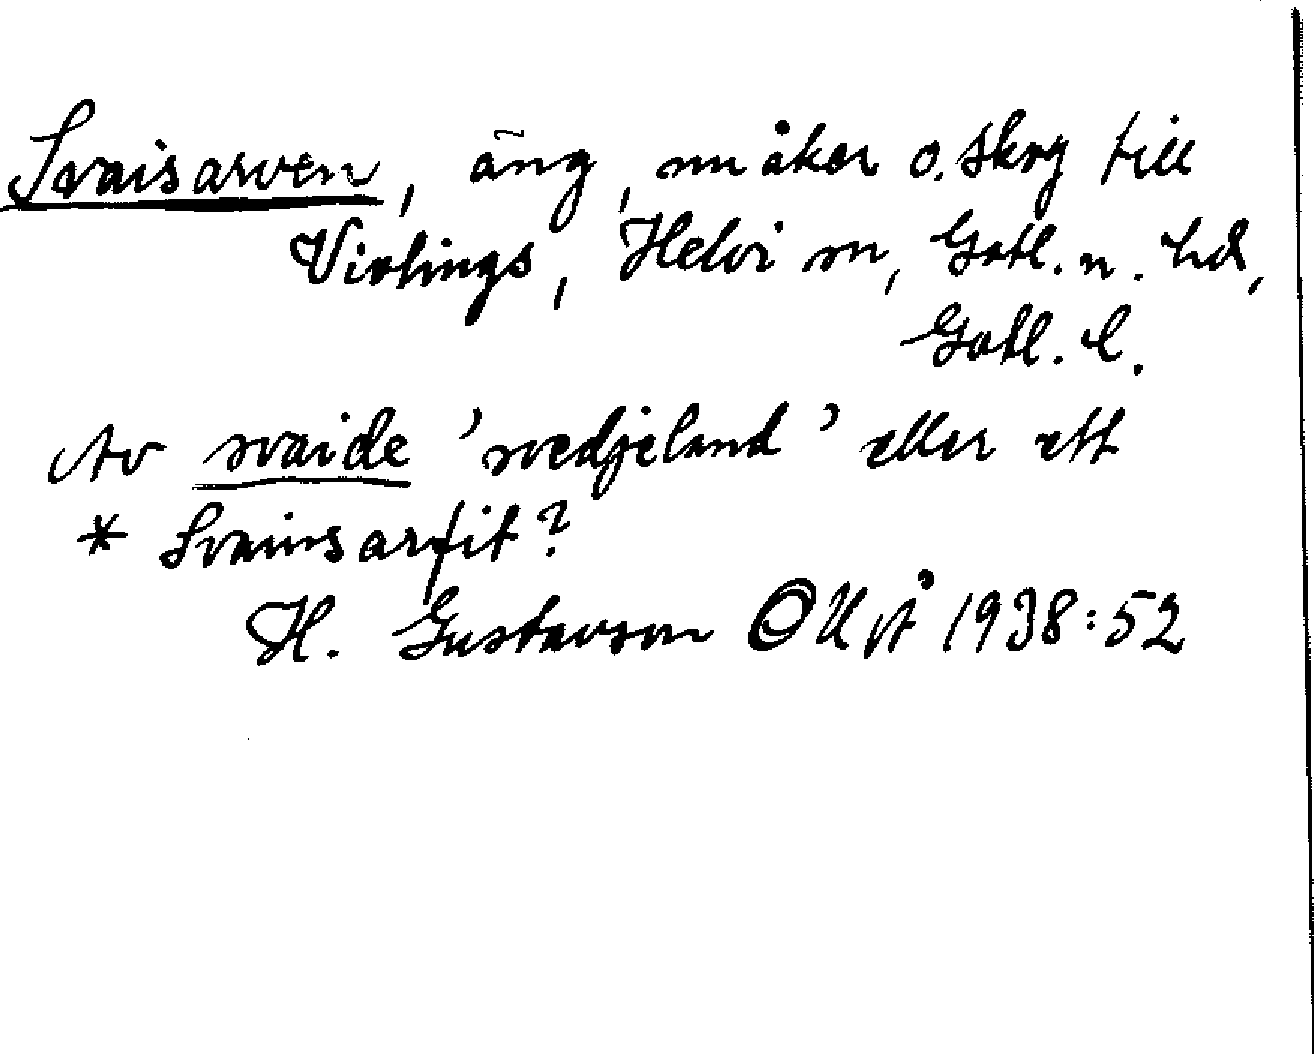 Svaisarven, äng, nu åker o. skog till
Vivlings, Helvi sn, Gotl. n. hd,
Gotl. l.
Av svaide 'svedjeland' eller ett
* Svainsarfit?
H. Gustavson 1938:52